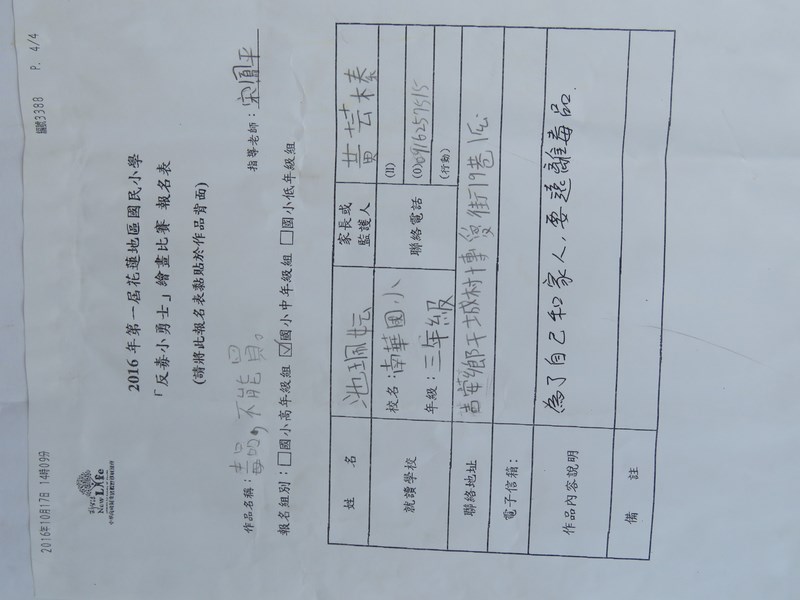 2016年10月17日 14時09分
編號3388 P. 4/4
New Life
2016年第一屆花蓮地區國民小學
「反毒小勇士」繪畫比賽 報名表
(請將此報名表黏貼於作品背面)
作品名稱：毒品，不能買。 指導老師：宋順平
報名組別：□國小高年級組 ☑國小中年級組 □國小低年級組
姓 名 池珮妘 家長或監護人 黃芸榛
就讀學校 校名：南華國小 聯絡電話 (H)
(O)0916257515
年級：三年級 (行動)
聯絡地址 吉安鄉干城村博愛街19巷
電子信箱：
作品內容說明 為了自己和家人，要遠離毒品.
備 註